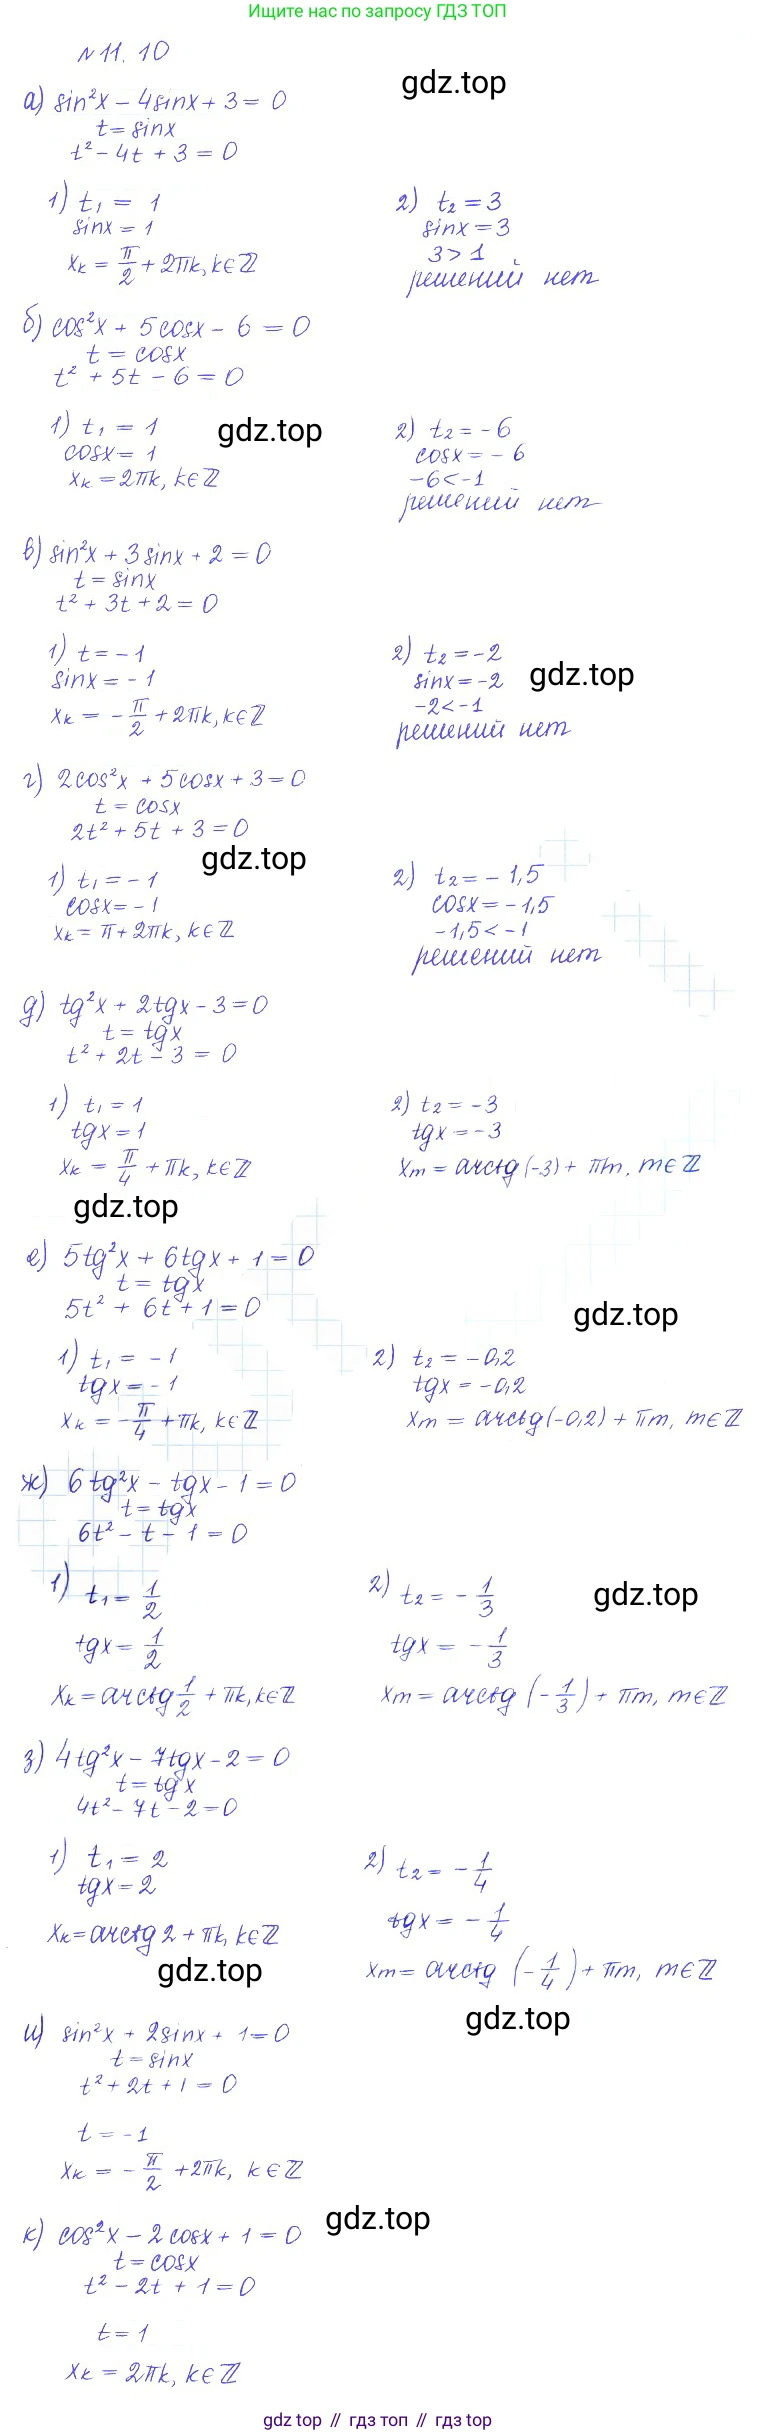 Ищите нас по запросу ГДЗ ТОП
№11.10
gdz.top
а) sin²x − 4sinx + 3 = 0
t = sinx
t² − 4t + 3 = 0
1) t₁ = 1
sinx = 1
xₖ = π/2 + 2πk, k∈ℤ
2) t₂ = 3
sinx = 3
3 > 1
решений нет
б) cos²x + 5cosx − 6 = 0
t = cosx
t² + 5t − 6 = 0
1) t₁ = 1
cosx = 1
xₖ = 2πk, k∈ℤ
gdz.top
2) t₂ = −6
cosx = −6
−6 < −1
решений нет
в) sin²x + 3sinx + 2 = 0
t = sinx
t² + 3t + 2 = 0
1) t = −1
sinx = −1
xₖ = −π/2 + 2πk, k∈ℤ
2) t₂ = −2
sinx = −2
−2 < −1
решений нет
gdz.top
г) 2cos²x + 5cosx + 3 = 0
t = cosx
2t² + 5t + 3 = 0
gdz.top
1) t₁ = −1
cosx = −1
xₖ = π + 2πk, k∈ℤ
2) t₂ = −1,5
cosx = −1,5
−1,5 < −1
решений нет
д) tg²x + 2tgx − 3 = 0
t = tgx
t² + 2t − 3 = 0
1) t₁ = 1
tgx = 1
xₖ = π/4 + πk, k∈ℤ
2) t₂ = −3
tgx = −3
xₘ = arctg(−3) + πm, m∈ℤ
gdz.top
е) 5tg²x + 6tgx + 1 = 0
t = tgx
5t² + 6t + 1 = 0
gdz.top
1) t₁ = −1
tgx = −1
xₖ = −π/4 + πk, k∈ℤ
2) t₂ = −0,2
tgx = −0,2
xₘ = arctg(−0,2) + πm, m∈ℤ
ж) 6tg²x − tgx − 1 = 0
t = tgx
6t² − t − 1 = 0
1) t₁ = 1/2
tgx = 1/2
xₖ = arctg 1/2 + πk, k∈ℤ
2) t₂ = −1/3
tgx = −1/3
xₘ = arctg (−1/3) + πm, m∈ℤ
gdz.top
з) 4tg²x − 7tgx − 2 = 0
t = tgx
4t² − 7t − 2 = 0
1) t₁ = 2
tgx = 2
xₖ = arctg 2 + πk, k∈ℤ
2) t₂ = −1/4
tgx = −1/4
xₘ = arctg (−1/4) + πm, m∈ℤ
gdz.top
gdz.top
и) sin²x + 2sinx + 1 = 0
t = sinx
t² + 2t + 1 = 0
t = −1
xₖ = −π/2 + 2πk, k∈ℤ
gdz.top
к) cos²x − 2cosx + 1 = 0
t = cosx
t² − 2t + 1 = 0
t = 1
xₖ = 2πk, k∈ℤ
gdz top // гдз топ // gdz top